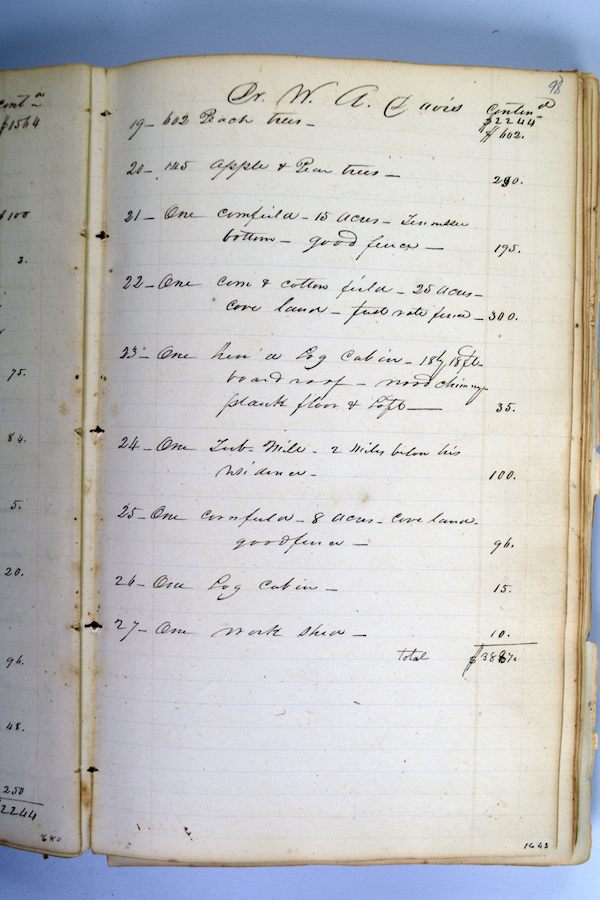 Cont
$1564
$100
3.
75.
84.
5.
20.
96.
48.
250
2244
98
Dr. W. A. Davis Contind
$2244
19 – 602 Peach trees – $602.
20 – 145 Apple & Pear trees – 290.
21 – One cornfield – 15 Acres – Tennessee
bottom – good fence – 195.
22 – One corn & cotton field – 25 Acres –
cove land – first rate fence – 300.
23 – One hewed Log Cabin – 18 by 18 ft.
board roof – wood chimney
plank floor & Loft – 35.
24 – One Tub Mill – 2 Miles below his
residence – 100.
25 – One cornfield – 8 Acres – cove land
good fence – 96.
26 – One Log Cabin – 15.
27 – One work shed – 10.
total
1643